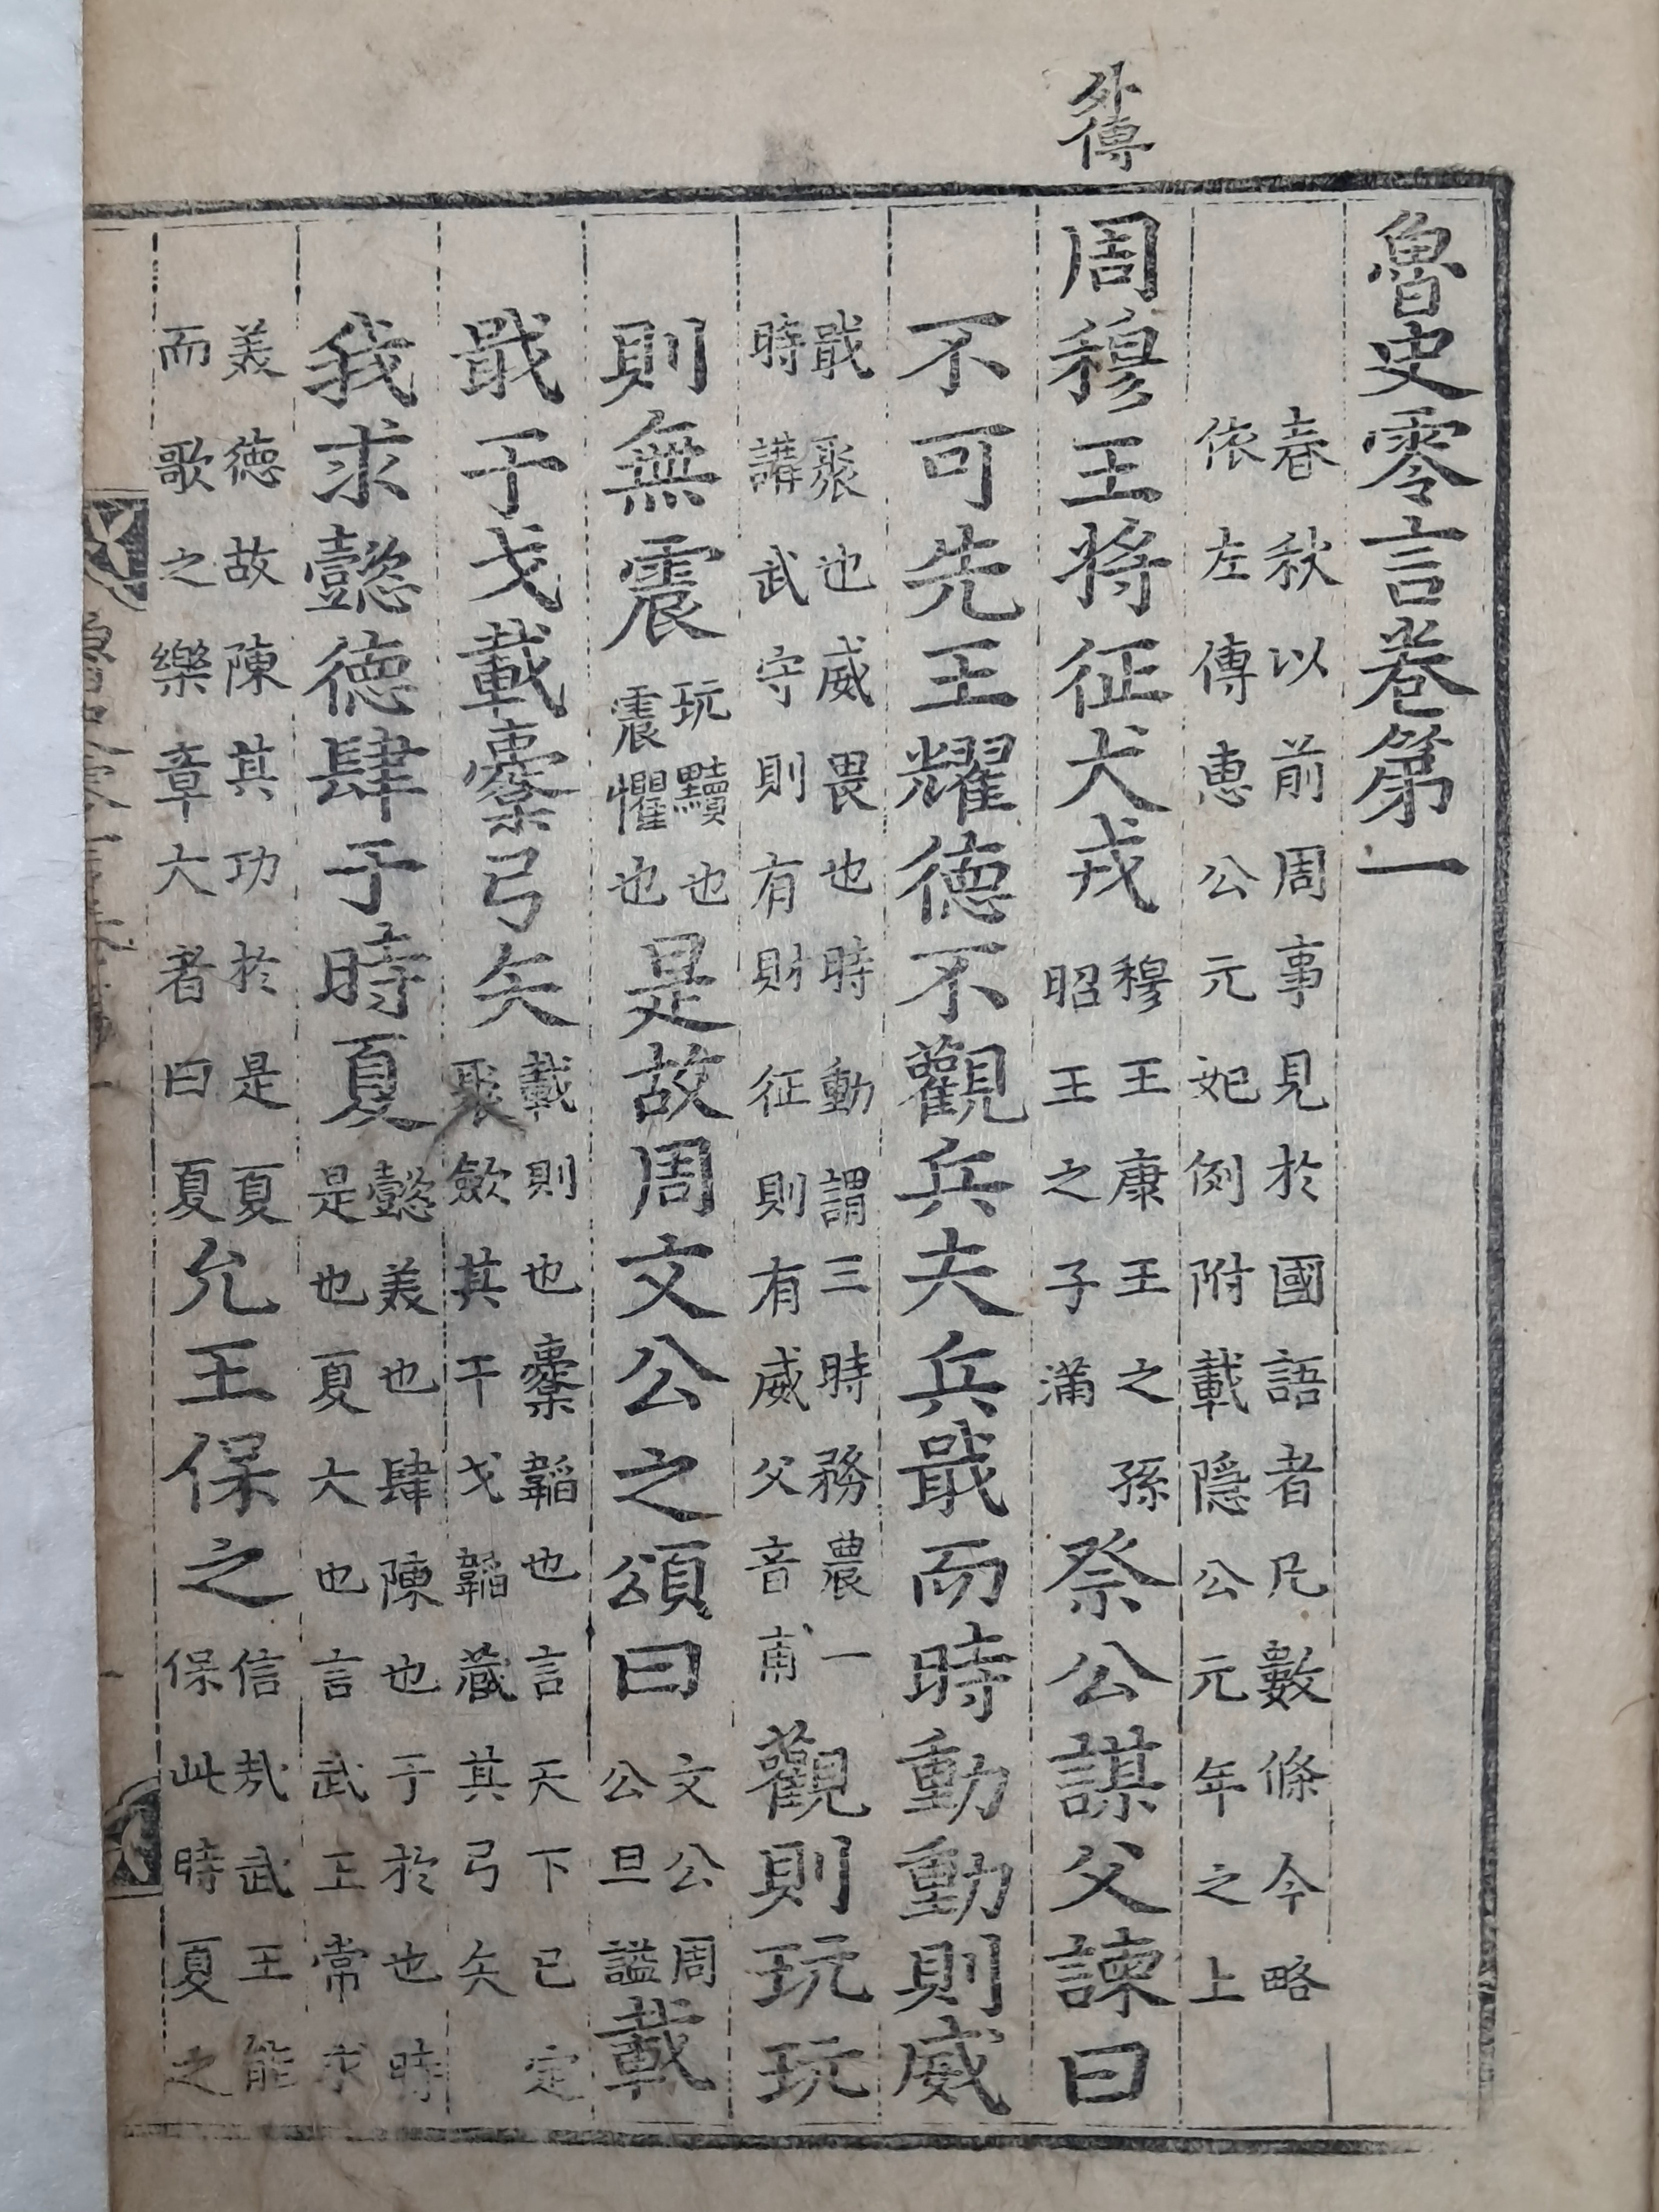 外傳
魯史零言卷第一
春秋以前周事見於國語者凡數條今略
依左傳惠公元妃例附載隱公元年之上
周穆王將征犬戎穆王康王之孫昭王之子滿祭公謀父諫曰
不可先王耀德不觀兵夫兵戢而時動動則威
戢聚也威畏也時動謂三時務農一時講武守則有財征則有威父音甫觀則玩玩
則無震玩黷也震懼也是故周文公之頌曰文公周公旦謚載
戢干戈載櫜弓矢載則也櫜韜也言天下已定聚斂其干戈韜藏其弓矢
我求懿德肆于時夏懿美也肆陳也于於也時是也夏大也言武王常求
美德故陳其功於是夏而歌之樂章大者曰夏允王保之信哉武王能保此時夏之